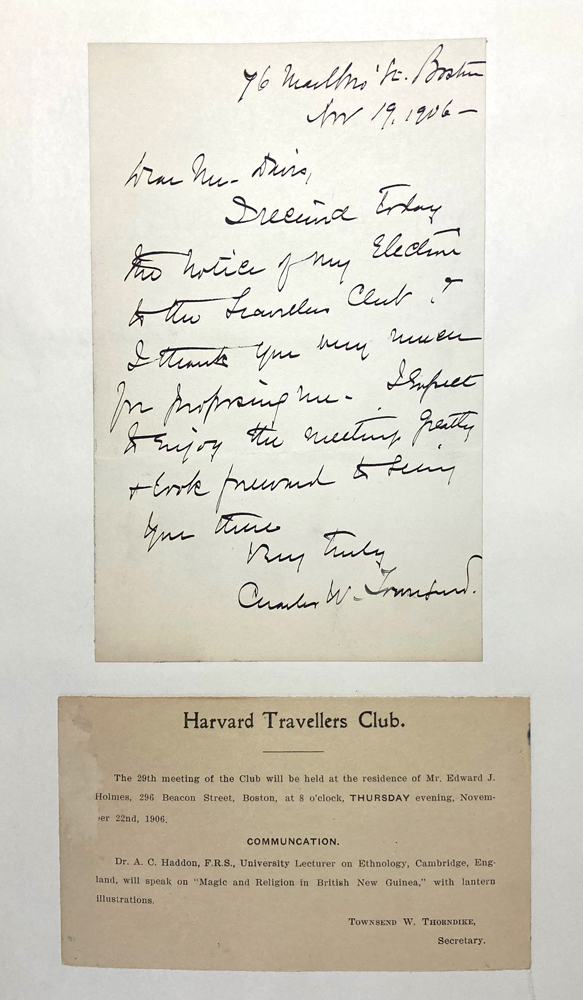 76 Marlbro' St. Boston
Nov 19, 1906 —
Dear Mr. Davis,
I received today
the notice of my Election
to the Travellers Club &
I thank you very much
for proposing me - I expect
to enjoy the meetings greatly
& look forward to seeing
you there
Very truly
Charles W. Townsend.
Harvard Travellers Club.
The 29th meeting of the Club will be held at the residence of Mr. Edward J.
Holmes, 296 Beacon Street, Boston, at 8 o'clock, THURSDAY evening, Novem-
er 22nd, 1906.
COMMUNCATION.
Dr. A. C. Haddon, F.R.S., University Lecturer on Ethnology, Cambridge, Eng-
land, will speak on "Magic and Religion in British New Guinea," with lantern
illustrations.
TOWNSEND W. THORNDIKE,
Secretary.